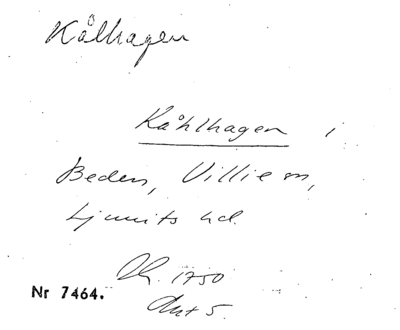 Kålhagen
Kåhlhagen i
Beden, Villie sn,
Ljunits hd.
1750
Nr 7464. Akt 5.